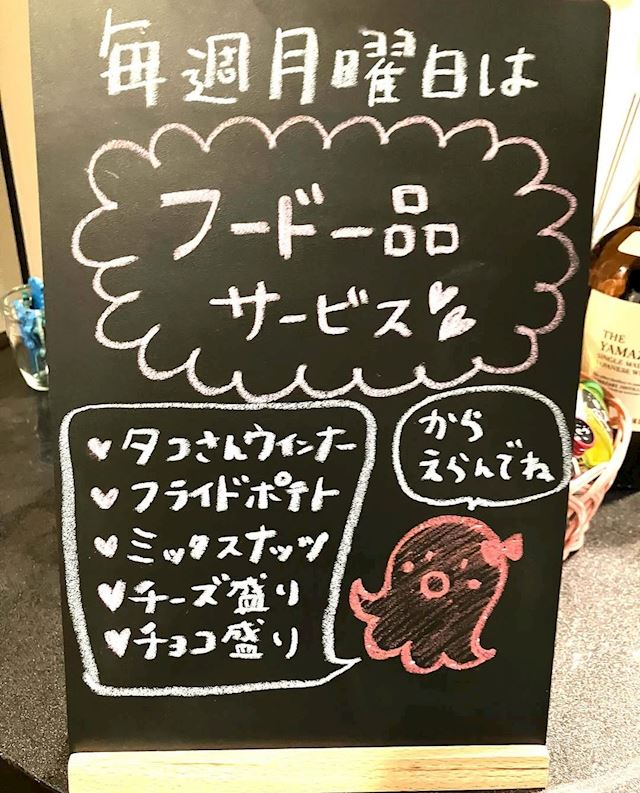 毎週月曜日は
フード一品
サービス
♥タコさんウィンナー
♥フライドポテト
♥ミックスナッツ
♥チーズ盛り
♥チョコ盛り
から
えらんでね
THE
YAMAZ
SINGLE MA
JAPANESE W